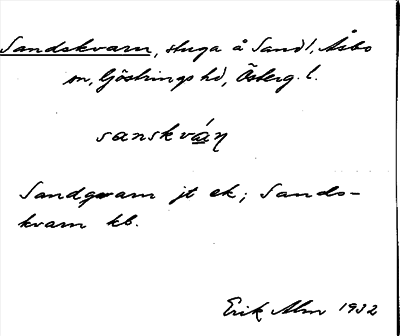 Sandskvarn, stuga å Sand l, Åsbo
sn, Göstrings hd, Österg. l.
sanskván
Sandqvarn jt ek; Sands-
kvarn kb.
Erik Alm 1932